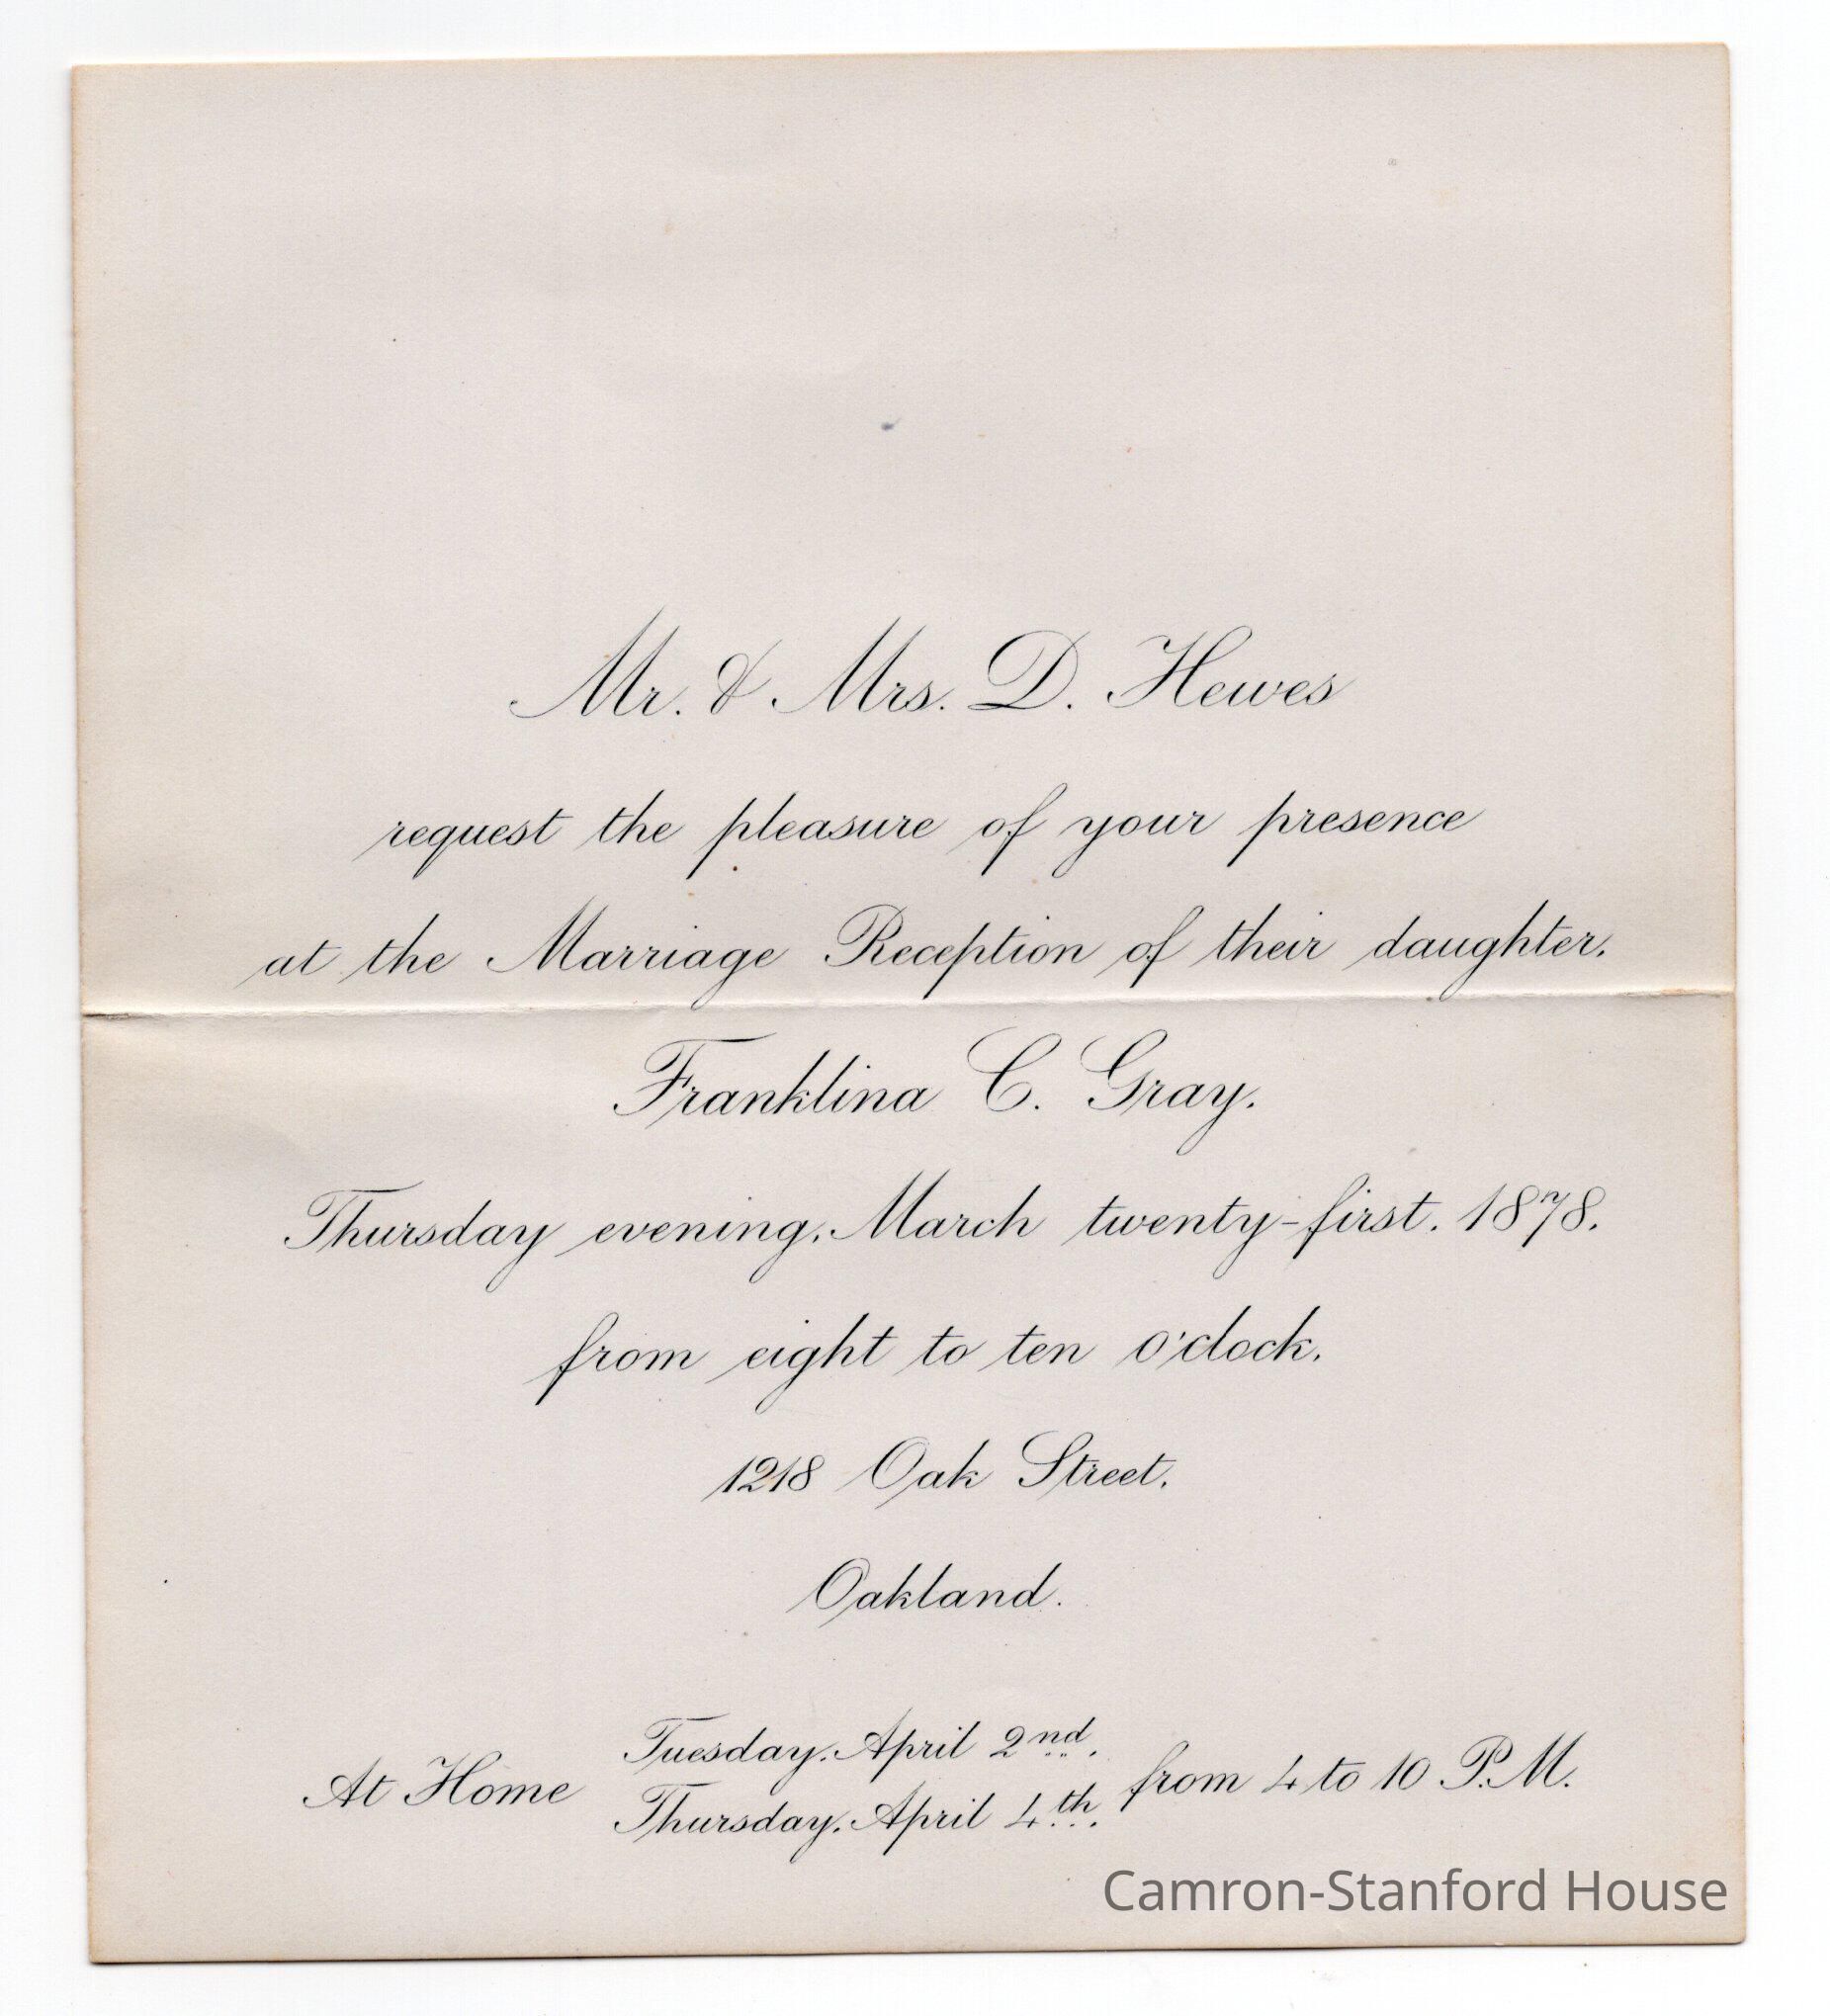 Mr. & Mrs. D. Hewes
request the pleasure of your presence
at the Marriage Reception of their daughter,
Franklina C. Gray.
Thursday evening, March twenty-first, 1878,
from eight to ten o'clock,
1218 Oak Street,
Oakland.
Tuesday, April 2nd,
At Home from 4 to 10 P.M.
Thursday, April 4th,
Camron-Stanford House